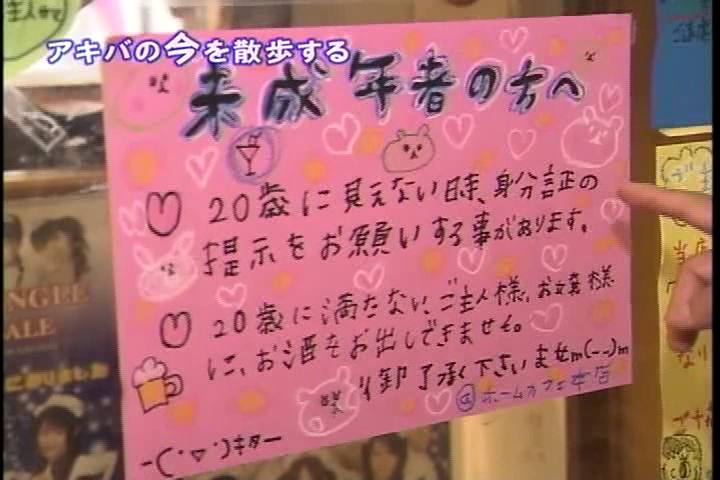 アキバの今を散歩する
来成年者の方へ
20歳に見えない時、身分証の
提示をお願いする事があります。
20歳に満たない、ご主人様、お嬢様
に、お酒をお出しできません。
御了承下さいませm(--)m
@ホームカフェ本店
-(・▽・)キター
NGLE
ALE
になりました
当店
なり
プチ